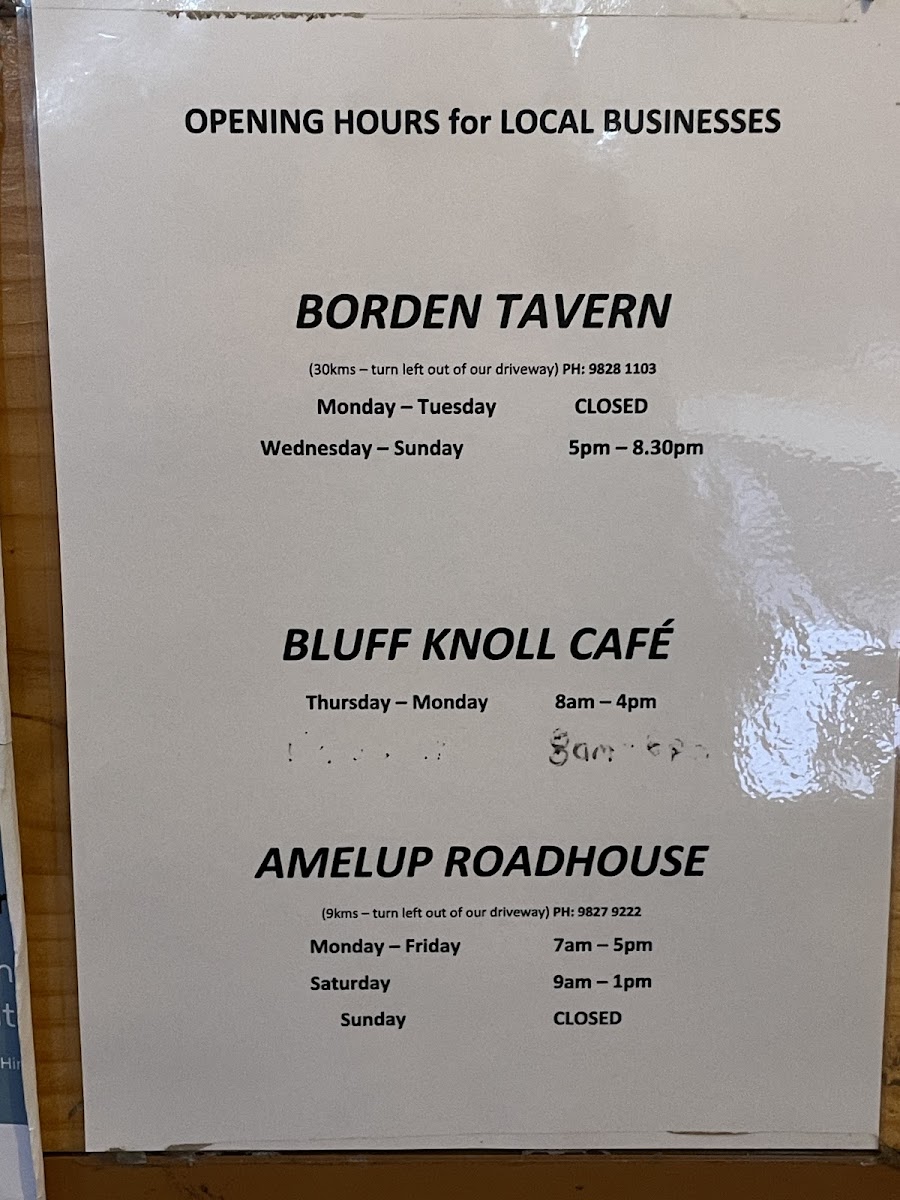 OPENING HOURS for LOCAL BUSINESSES
BORDEN TAVERN
(30kms – turn left out of our driveway) PH: 9828 1103
Monday – Tuesday CLOSED
Wednesday – Sunday 5pm – 8.30pm
BLUFF KNOLL CAFÉ
Thursday – Monday 8am – 4pm
8am
AMELUP ROADHOUSE
(9kms – turn left out of our driveway) PH: 9827 9222
Monday – Friday 7am – 5pm
Saturday 9am – 1pm
Sunday CLOSED